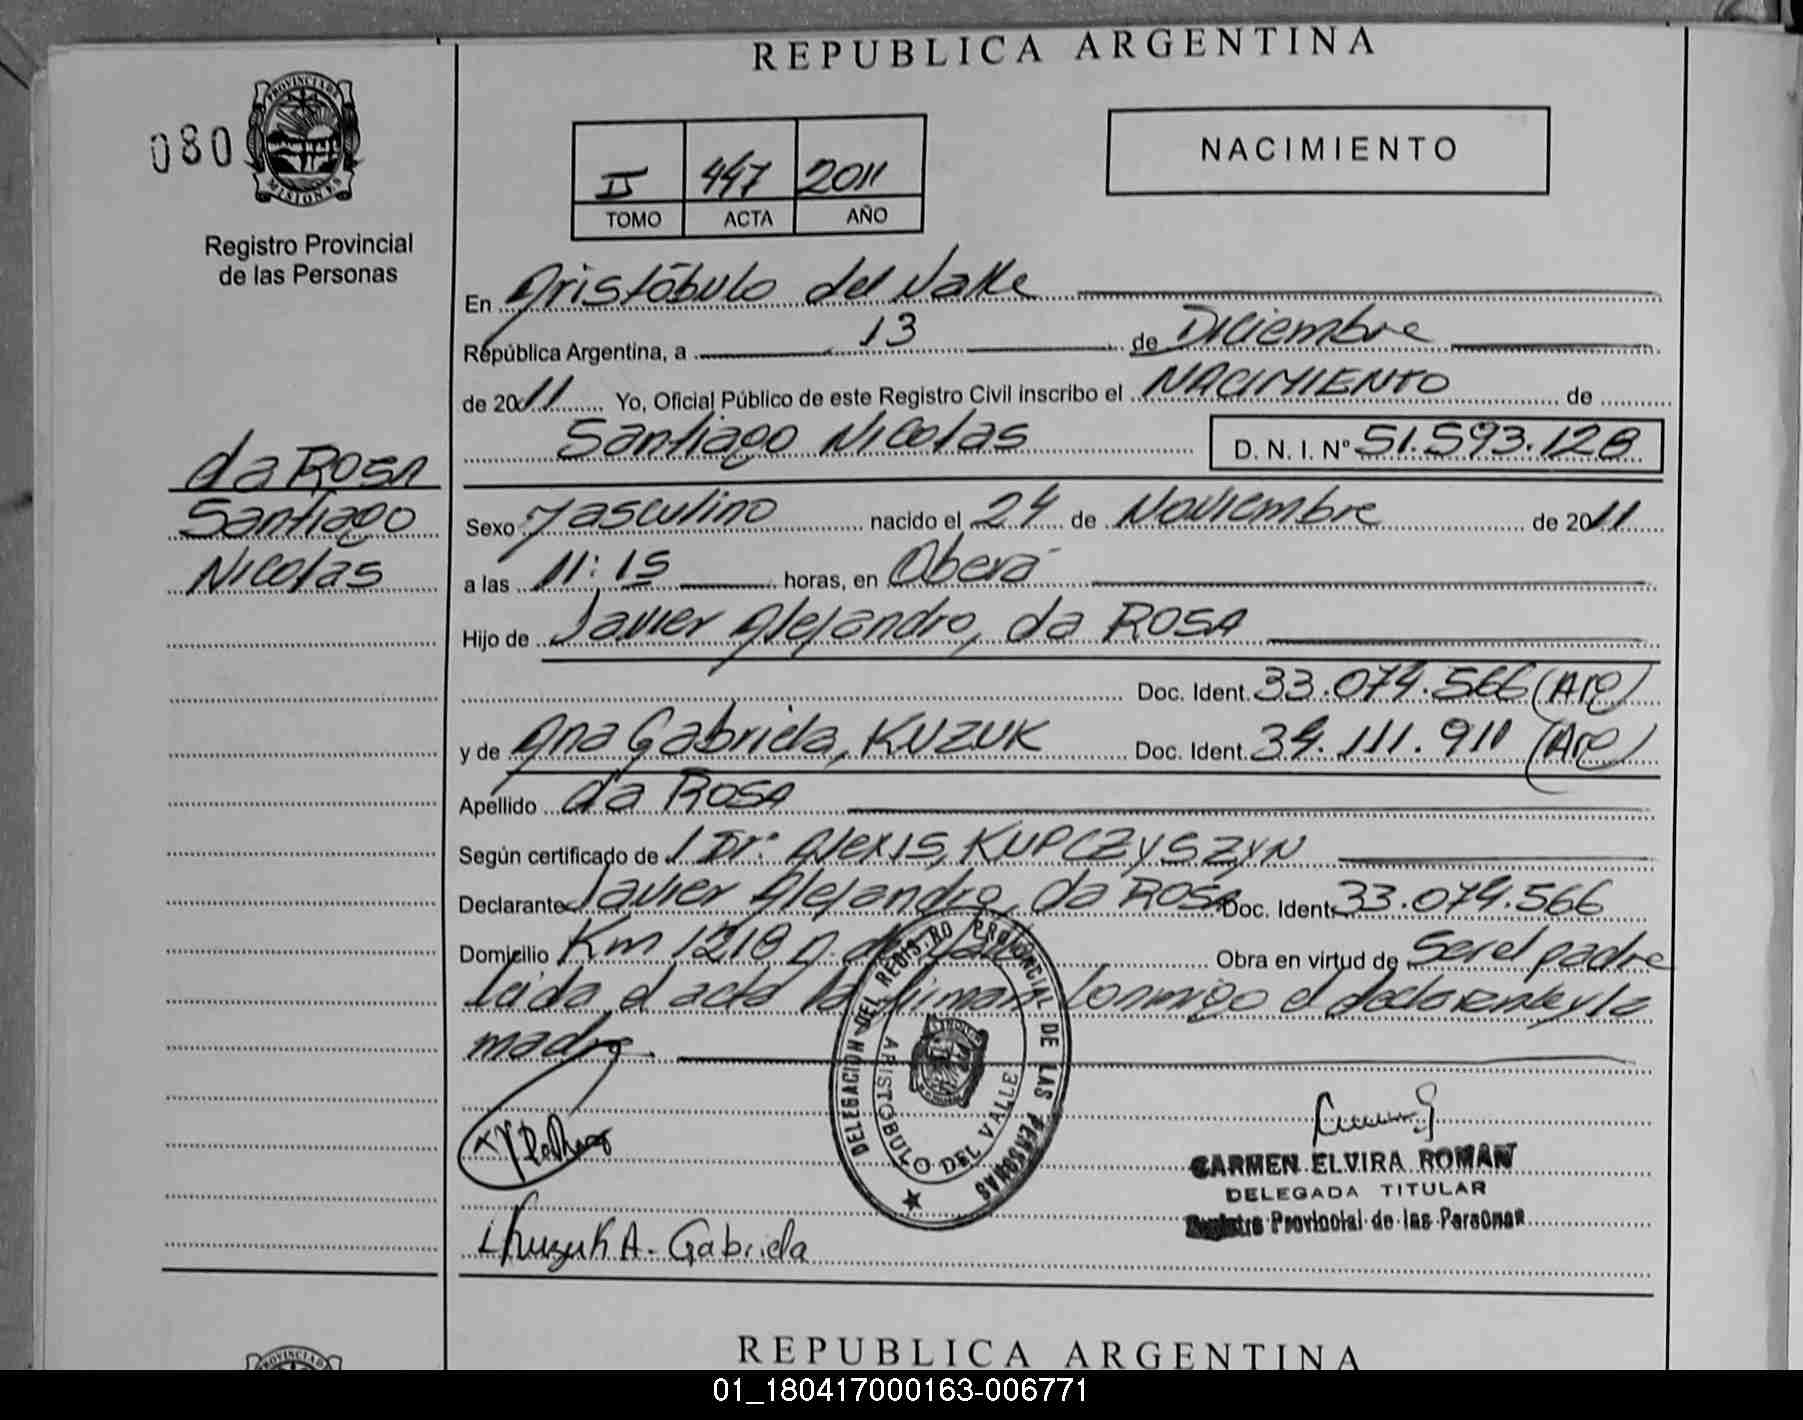 REPUBLICA ARGENTINA
080
PROVINCIA DE
MISIONES
Registro Provincial
de las Personas
II 447 2011
TOMO ACTA AÑO
NACIMIENTO
En Aristóbulo del Valle
República Argentina, a 13 de Diciembre
de 2011 Yo, Oficial Público de este Registro Civil inscribo el NACIMIENTO de
Santiago Nicolas D. N. I. Nº 51.593.128
da ROSA
Santiago
Nicolas
Sexo Masculino nacido el 24 de Noviembre de 2011
a las 11:15 horas, en Oberá
Hijo de Javier Alejandro, da ROSA
Doc. Ident. 33.074.566 (Arg)
y de Ana Gabriela, KUZUK Doc. Ident. 34.111.911 (Arg)
Apellido da ROSA
Según certificado de Dr. Alexis, KUPCZYSZYN
Declarante Javier Alejandro, da ROSA Doc. Ident. 33.074.566
Domicilio Km 1218 A. del Valle Obra en virtud de Ser el padre
leida el acta la firman conmigo el declarante y la
madre
DELEGACION DEL REGISTRO PROVINCIAL DE LAS PERSONAS
ARISTÓBULO DEL VALLE
CARMEN ELVIRA ROMAN
DELEGADA TITULAR
Registro Provincial de las Personas
Kuzuk A. Gabriela
PROVINCIA
REPUBLICA ARGENTINA
01_180417000163-006771